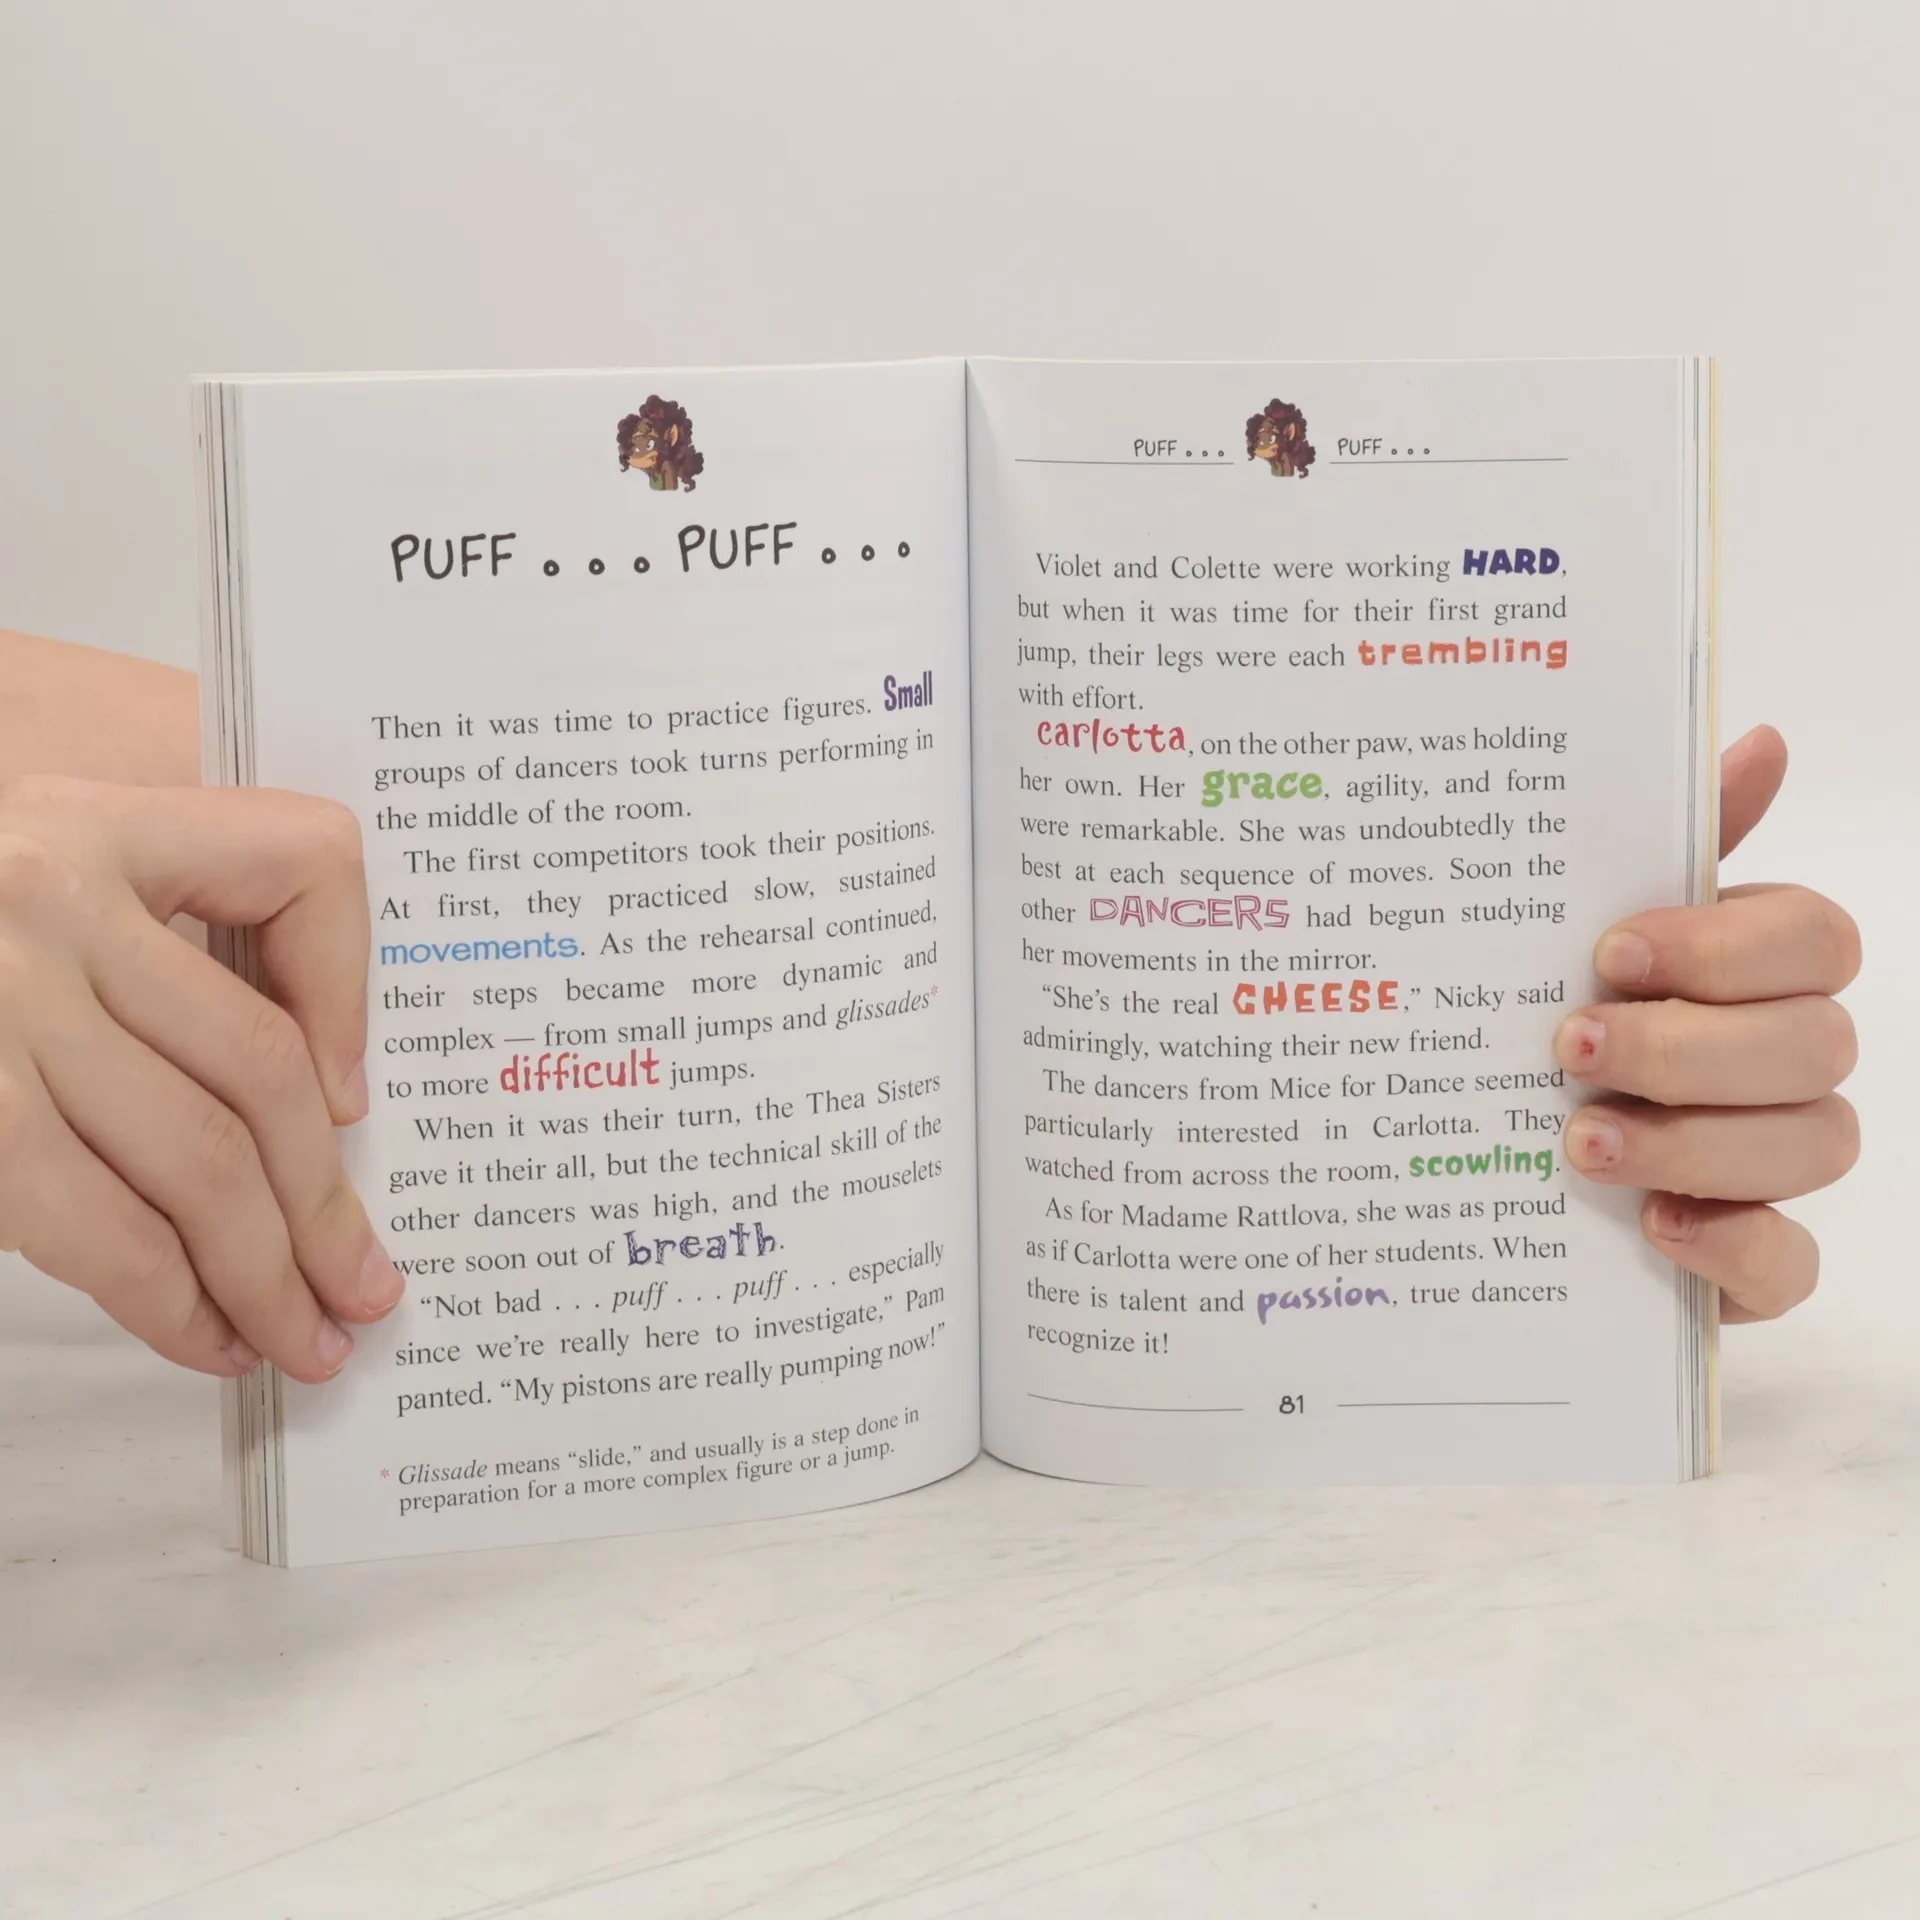 PUFF . . . PUFF . . .
Then it was time to practice figures. Small
groups of dancers took turns performing in
the middle of the room.
The first competitors took their positions.
At first, they practiced slow, sustained
movements. As the rehearsal continued,
their steps became more dynamic and
complex — from small jumps and glissades*
to more difficult jumps.
When it was their turn, the Thea Sisters
gave it their all, but the technical skill of the
other dancers was high, and the mouselets
were soon out of breath.
“Not bad . . . puff . . . puff . . . especially
since we’re really here to investigate,” Pam
panted. “My pistons are really pumping now!”
* Glissade means “slide,” and usually is a step done in
preparation for a more complex figure or a jump.
PUFF . . . PUFF . . .
Violet and Colette were working HARD,
but when it was time for their first grand
jump, their legs were each trembling
with effort.
carlotta, on the other paw, was holding
her own. Her grace, agility, and form
were remarkable. She was undoubtedly the
best at each sequence of moves. Soon the
other DANCERS had begun studying
her movements in the mirror.
“She’s the real CHEESE,” Nicky said
admiringly, watching their new friend.
The dancers from Mice for Dance seemed
particularly interested in Carlotta. They
watched from across the room, scowling.
As for Madame Rattlova, she was as proud
as if Carlotta were one of her students. When
there is talent and passion, true dancers
recognize it!
81